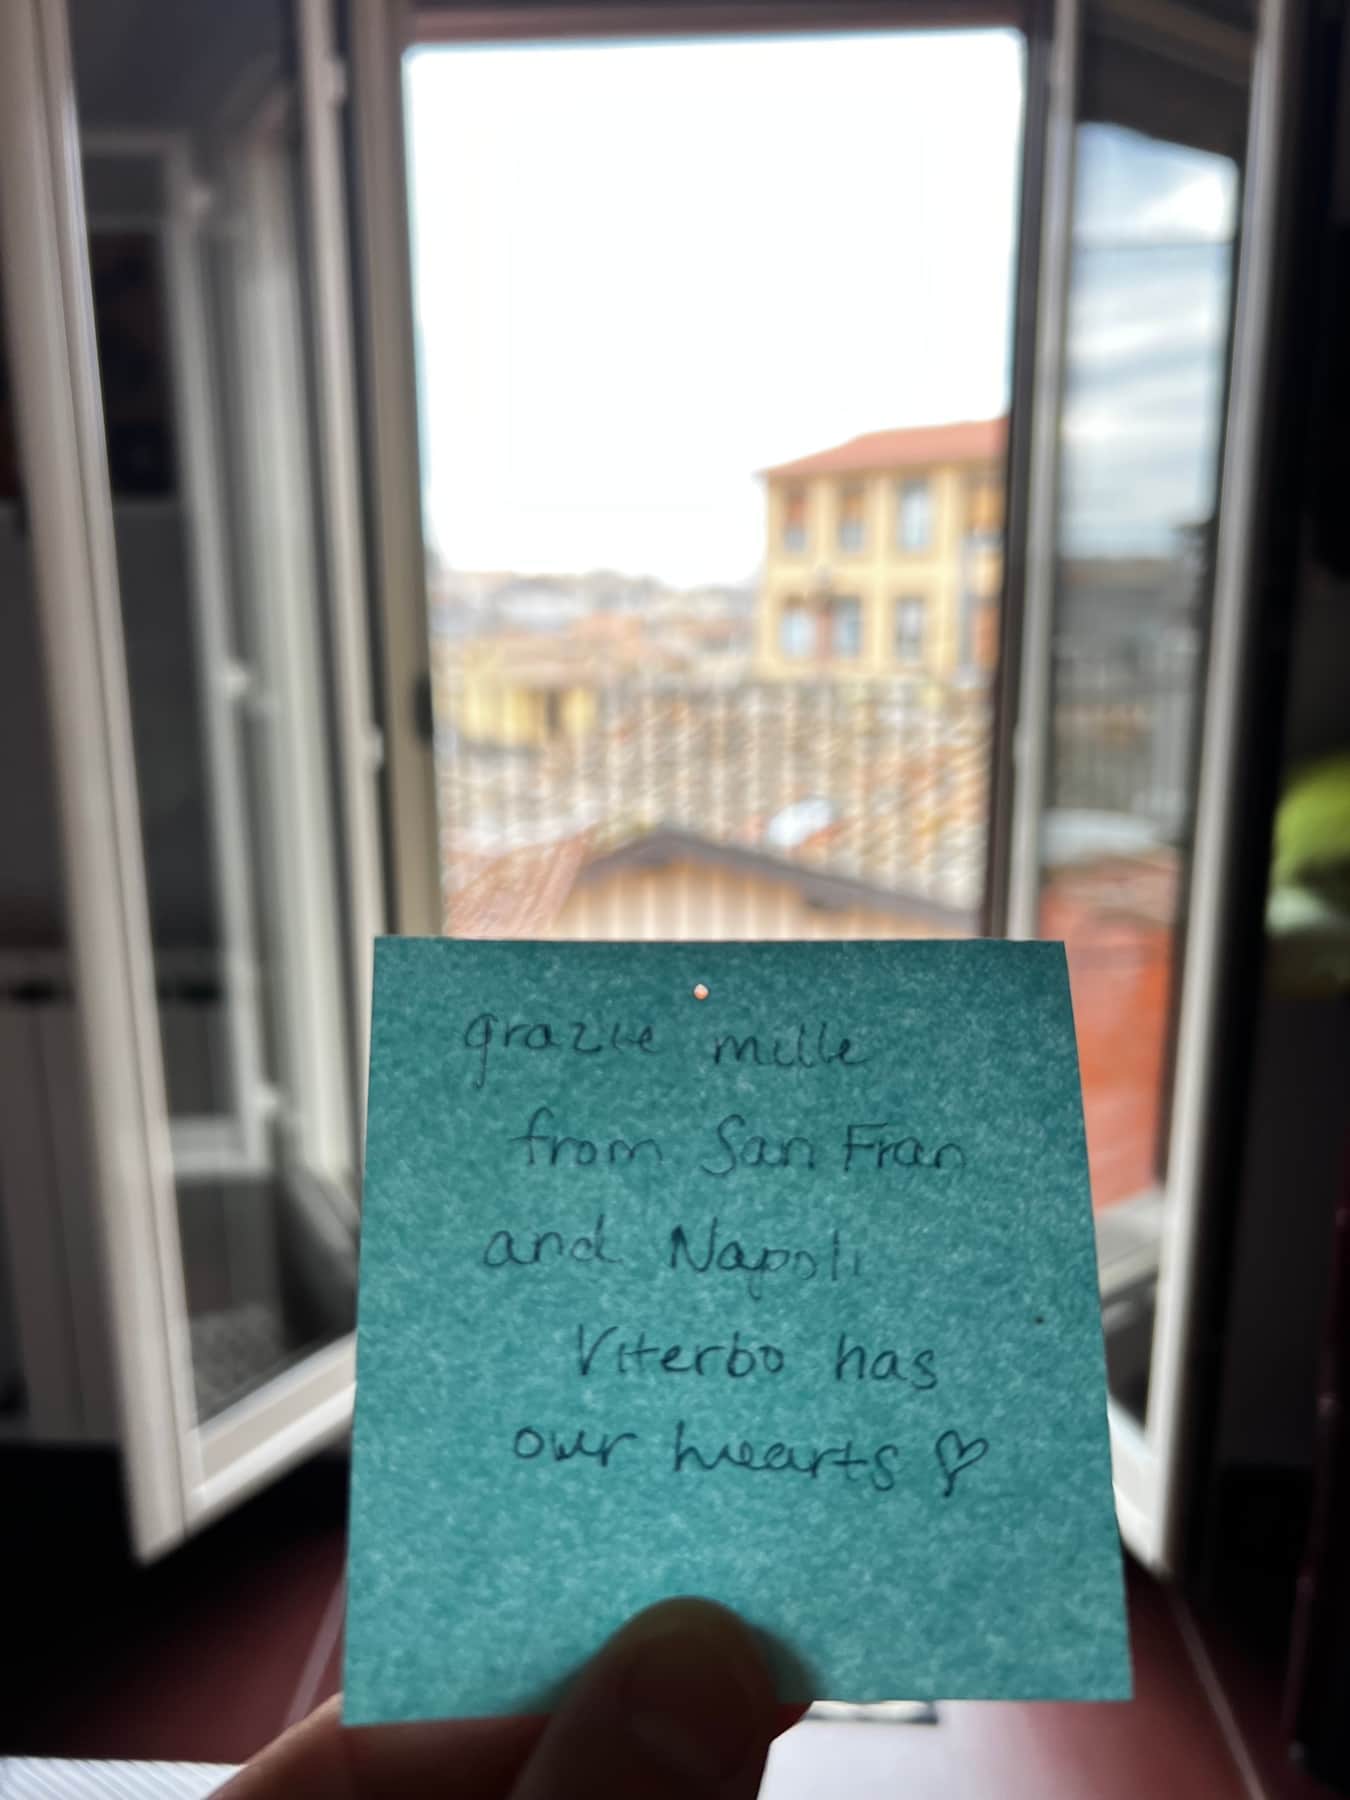 grazie mille
from San Fran
and Napoli
Viterbo has
our hearts ♡